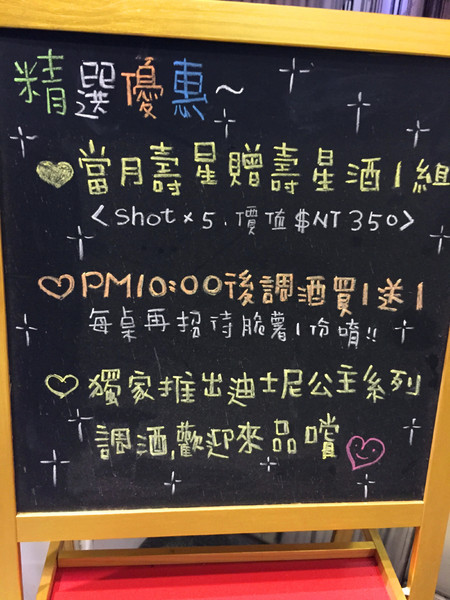 精選優惠~
當月壽星贈壽星酒1組
<shot×5,價值$NT350>
PM10:00後調酒買1送1
每桌再招待脆薯1份唷!!
獨家推出迪士尼公主系列
調酒,歡迎來品嚐